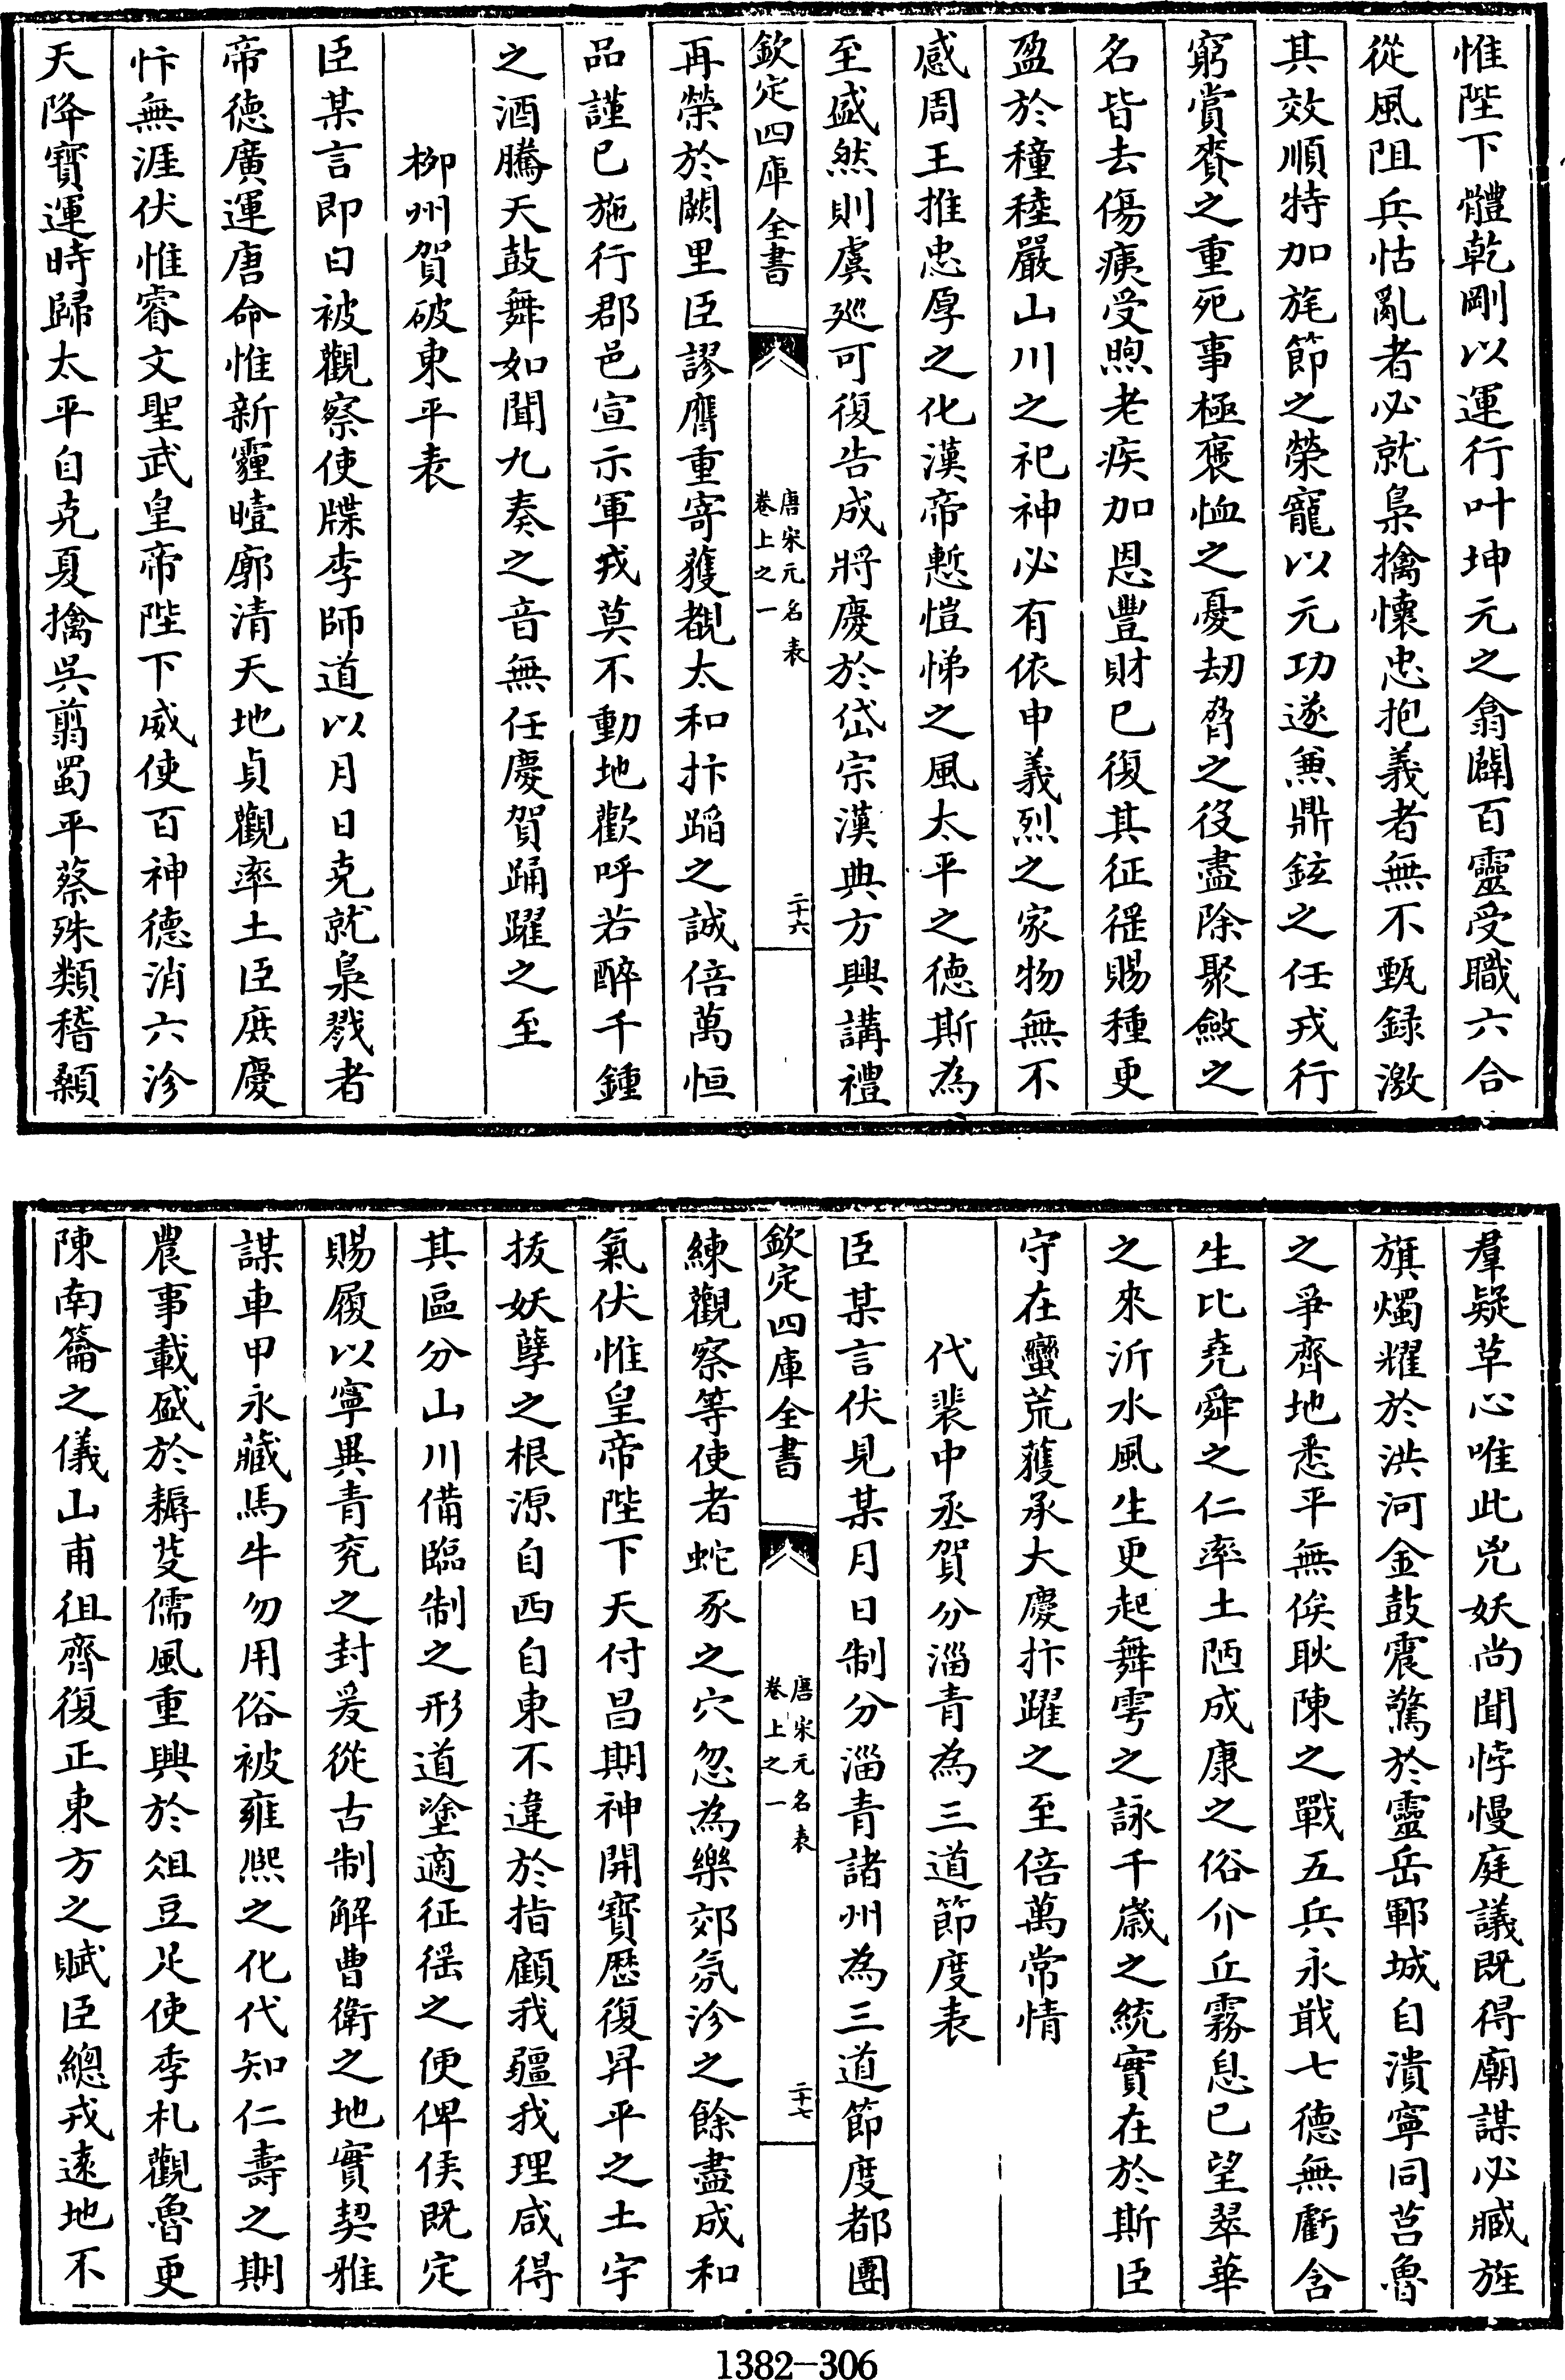 惟陛下體乾剛以運行叶坤元之翕闢百靈受職六合
從風阻兵怙亂者必就梟擒懷忠抱義者無不甄録激
其效順特加旄節之榮寵以元功遂兼鼎鉉之任戎行
窮賞賚之重死事極褒恤之憂刼脅之役盡除聚斂之
名皆去傷痍受煦老疾加恩豐財已復其征徭賜種更
盈於穜稑嚴山川之祀神必有依申義烈之家物無不
感周王推忠厚之化漢帝慙愷悌之風太平之德斯為
至盛然則虞廵可復告成將慶於岱宗漢典方興講禮
欽定四庫全書
唐宋元名表
卷上之一
二十六
再榮於闕里臣謬膺重寄獲覩太和抃蹈之誠倍萬恒
品謹已施行郡邑宣示軍戎莫不動地歡呼若醉千鍾
之酒騰天鼓舞如聞九奏之音無任慶賀踊躍之至
栁州賀破東平表
臣某言即日被觀察使牒李師道以月日克就梟戮者
帝德廣運唐命惟新霾曀廓清天地貞觀率土臣庶慶
忭無涯伏惟睿文聖武皇帝陛下威使百神德消六沴
天降寳運時歸太平自克夏擒吳翦蜀平蔡殊類稽顙
羣疑革心唯此兇妖尚聞悖慢庭議既得廟謀必臧旌
旗燭耀於洪河金鼓震驚於靈岳鄆城自潰寧同莒魯
之爭齊地悉平無俟耿陳之戰五兵永戢七德無虧含
生比堯舜之仁率土陋成康之俗介丘霧息已望翠華
之來沂水風生更起舞雩之詠千嵗之統實在於斯臣
守在蠻荒獲承大慶抃躍之至倍萬常情
代裴中丞賀分淄青為三道節度表
臣某言伏見某月日制分淄青諸州為三道節度都團
欽定四庫全書
唐宋元名表
卷上之一
二十七
練觀察等使者蛇豕之穴忽為樂郊氛沴之餘盡成和
氣伏惟皇帝陛下天付昌期神開寳歴復昇平之土宇
拔妖孽之根源自西自東不違於指顧我疆我理咸得
其區分山川備臨制之形道塗適征徭之便俾侯既定
賜履以寧異青兖之封爰從古制解曹衛之地實契雅
謀車甲永藏馬牛勿用俗被雍熙之化代知仁壽之期
農事載盛於耨芟儒風重興於俎豆足使季札觀魯更
陳南籥之儀山甫徂齊復正東方之賦臣總戎逺地不
1382-306